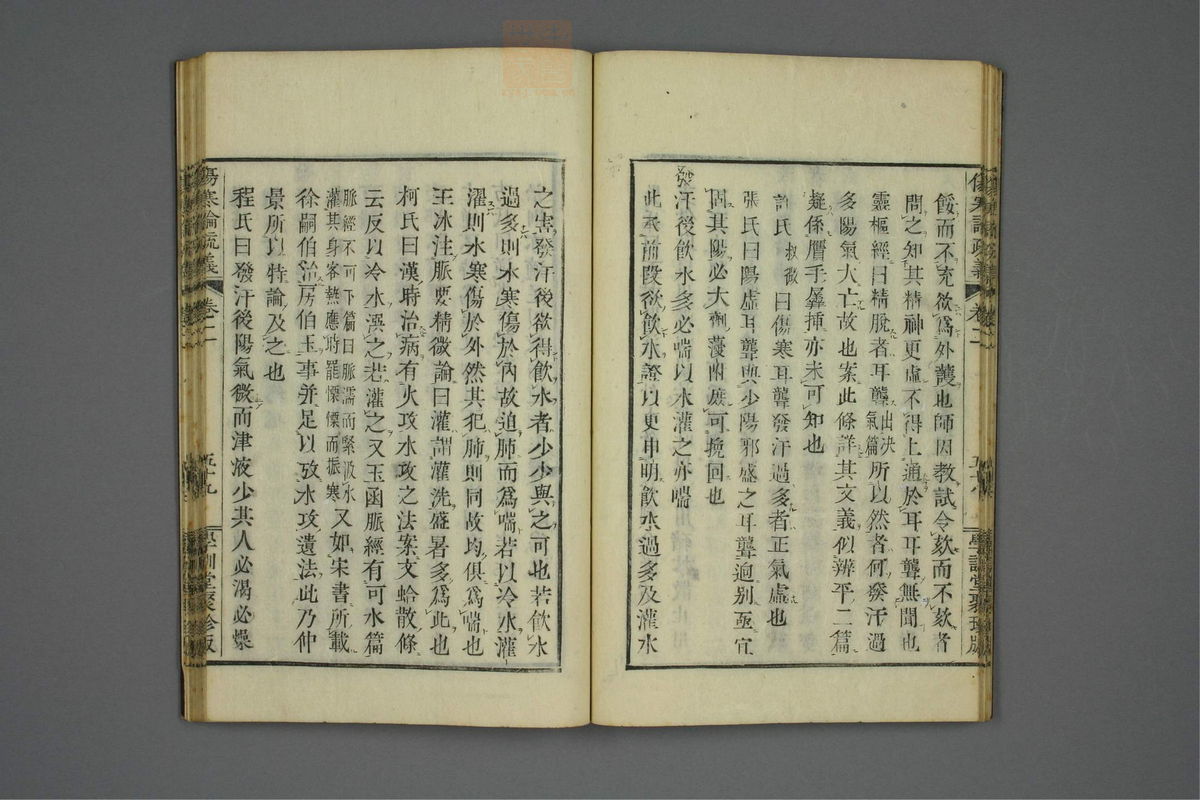 餒而不充欲爲外護也師因教試令欬而不欬者
問之知其精神更虛不得上通於耳耳聾無聞也
靈樞經曰精脫者耳聾出决氣篇所以然者何發汗過
多陽氣大亡故也案此條詳其文義似辨平二篇
疑係贋手羼揷亦未可知也
許氏叔微曰傷寒耳聾發汗過多者正氣虛也
張氏曰陽虛耳聾與少陽邪盛之耳聾逈别亟宜
固其陽必大劑蓡附庶可挽回也
發汗後飲水多必喘以水灌之亦喘
此承前段欲飲水證以更申明飲水過多及灌水
傷寒論疏義 卷二 五十八 學訓堂聚珍版
之害發汗後欲得飲水者少少與之可也若飲水
過多則水寒傷於內故迫肺而爲喘若以冷水灌
濯則水寒傷於外然其犯肺則同故均俱爲喘也
王冰注脈要精微論曰灌謂灌洗盛暑多爲此也
柯氏曰漢時治病有火攻水攻之法案文蛤散條
云反以冷水潠之若灌之又玉函脈經有可水篇
脈經不可下篇曰脈濡而緊汲水
灌其身客熱應時罷慄慄而振寒又如宋書所載
徐嗣伯治房伯玉事并足以攷水攻遺法此乃仲
景所以特論及之也
程氏曰發汗後陽氣微而津液少其人必渴必燥
傷寒論疏義 卷二 五十九 學訓堂聚珍版